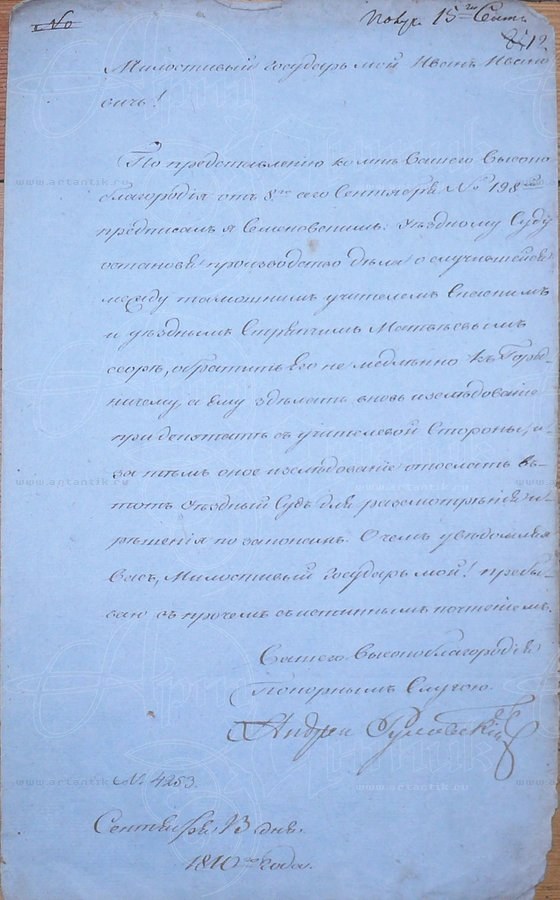 №
Получ. 15го Сент.
1810
Милостивый государь мой Иванъ Ивано
вичь!
По представленію ко мнѣ Вашего Высоко
благородія отъ 8го сего Сентября № 198
предписалъ я Семеновскимъ уѣздному Суду
остановя производство дѣла о случившейся
между тамошнимъ учителемъ Спаскимъ
и уѣзднымъ Стряпчимъ Матвѣевымъ
ссорѣ, обратить его не медлѣнно къ Городни-
чему, а ему здѣлать вновь изслѣдованіе
при депутатѣ съ учителевой Стороны, и
за тѣмъ оное изслѣдованіе отослать въ
тотъ уѣздный Судъ для разсмотрѣнія и
рѣшенія по законамъ. О чемъ увѣдомляя
Васъ, Милостивый государь мой! пребы-
ваю въ прочемъ съ истиннымъ почтеніемъ.
Вашего Высокоблагородія
Покорнымъ Слугою
Андрей Руновскій
№ 4253.
Сентября 13 дня.
1810го года.
www.artantik.ru